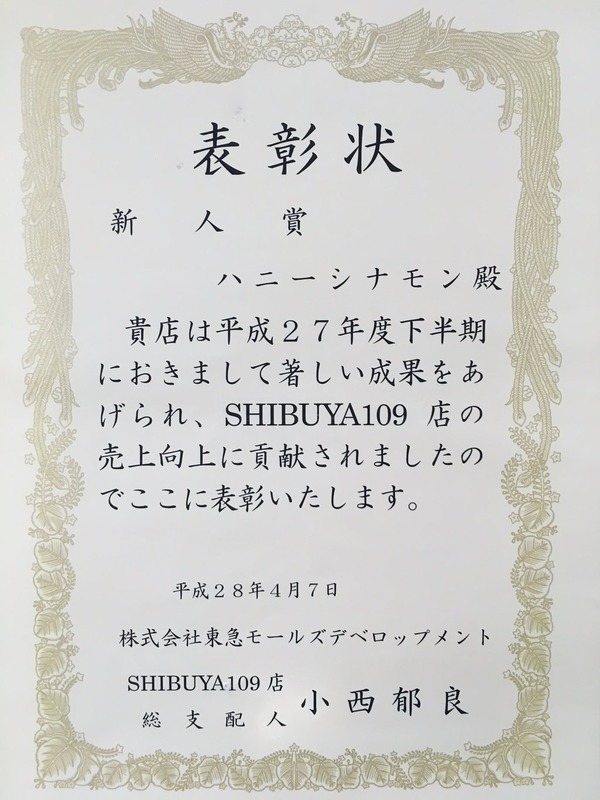 表彰状
新人賞
ハニーシナモン殿
貴店は平成２７年度下半期
におきまして著しい成果をあ
げられ、SHIBUYA109 店の
売上向上に貢献されましたの
でここに表彰いたします。
平成２８年４月７日
株式会社東急モールズデベロップメント
SHIBUYA109 店
総支配人 小西郁良